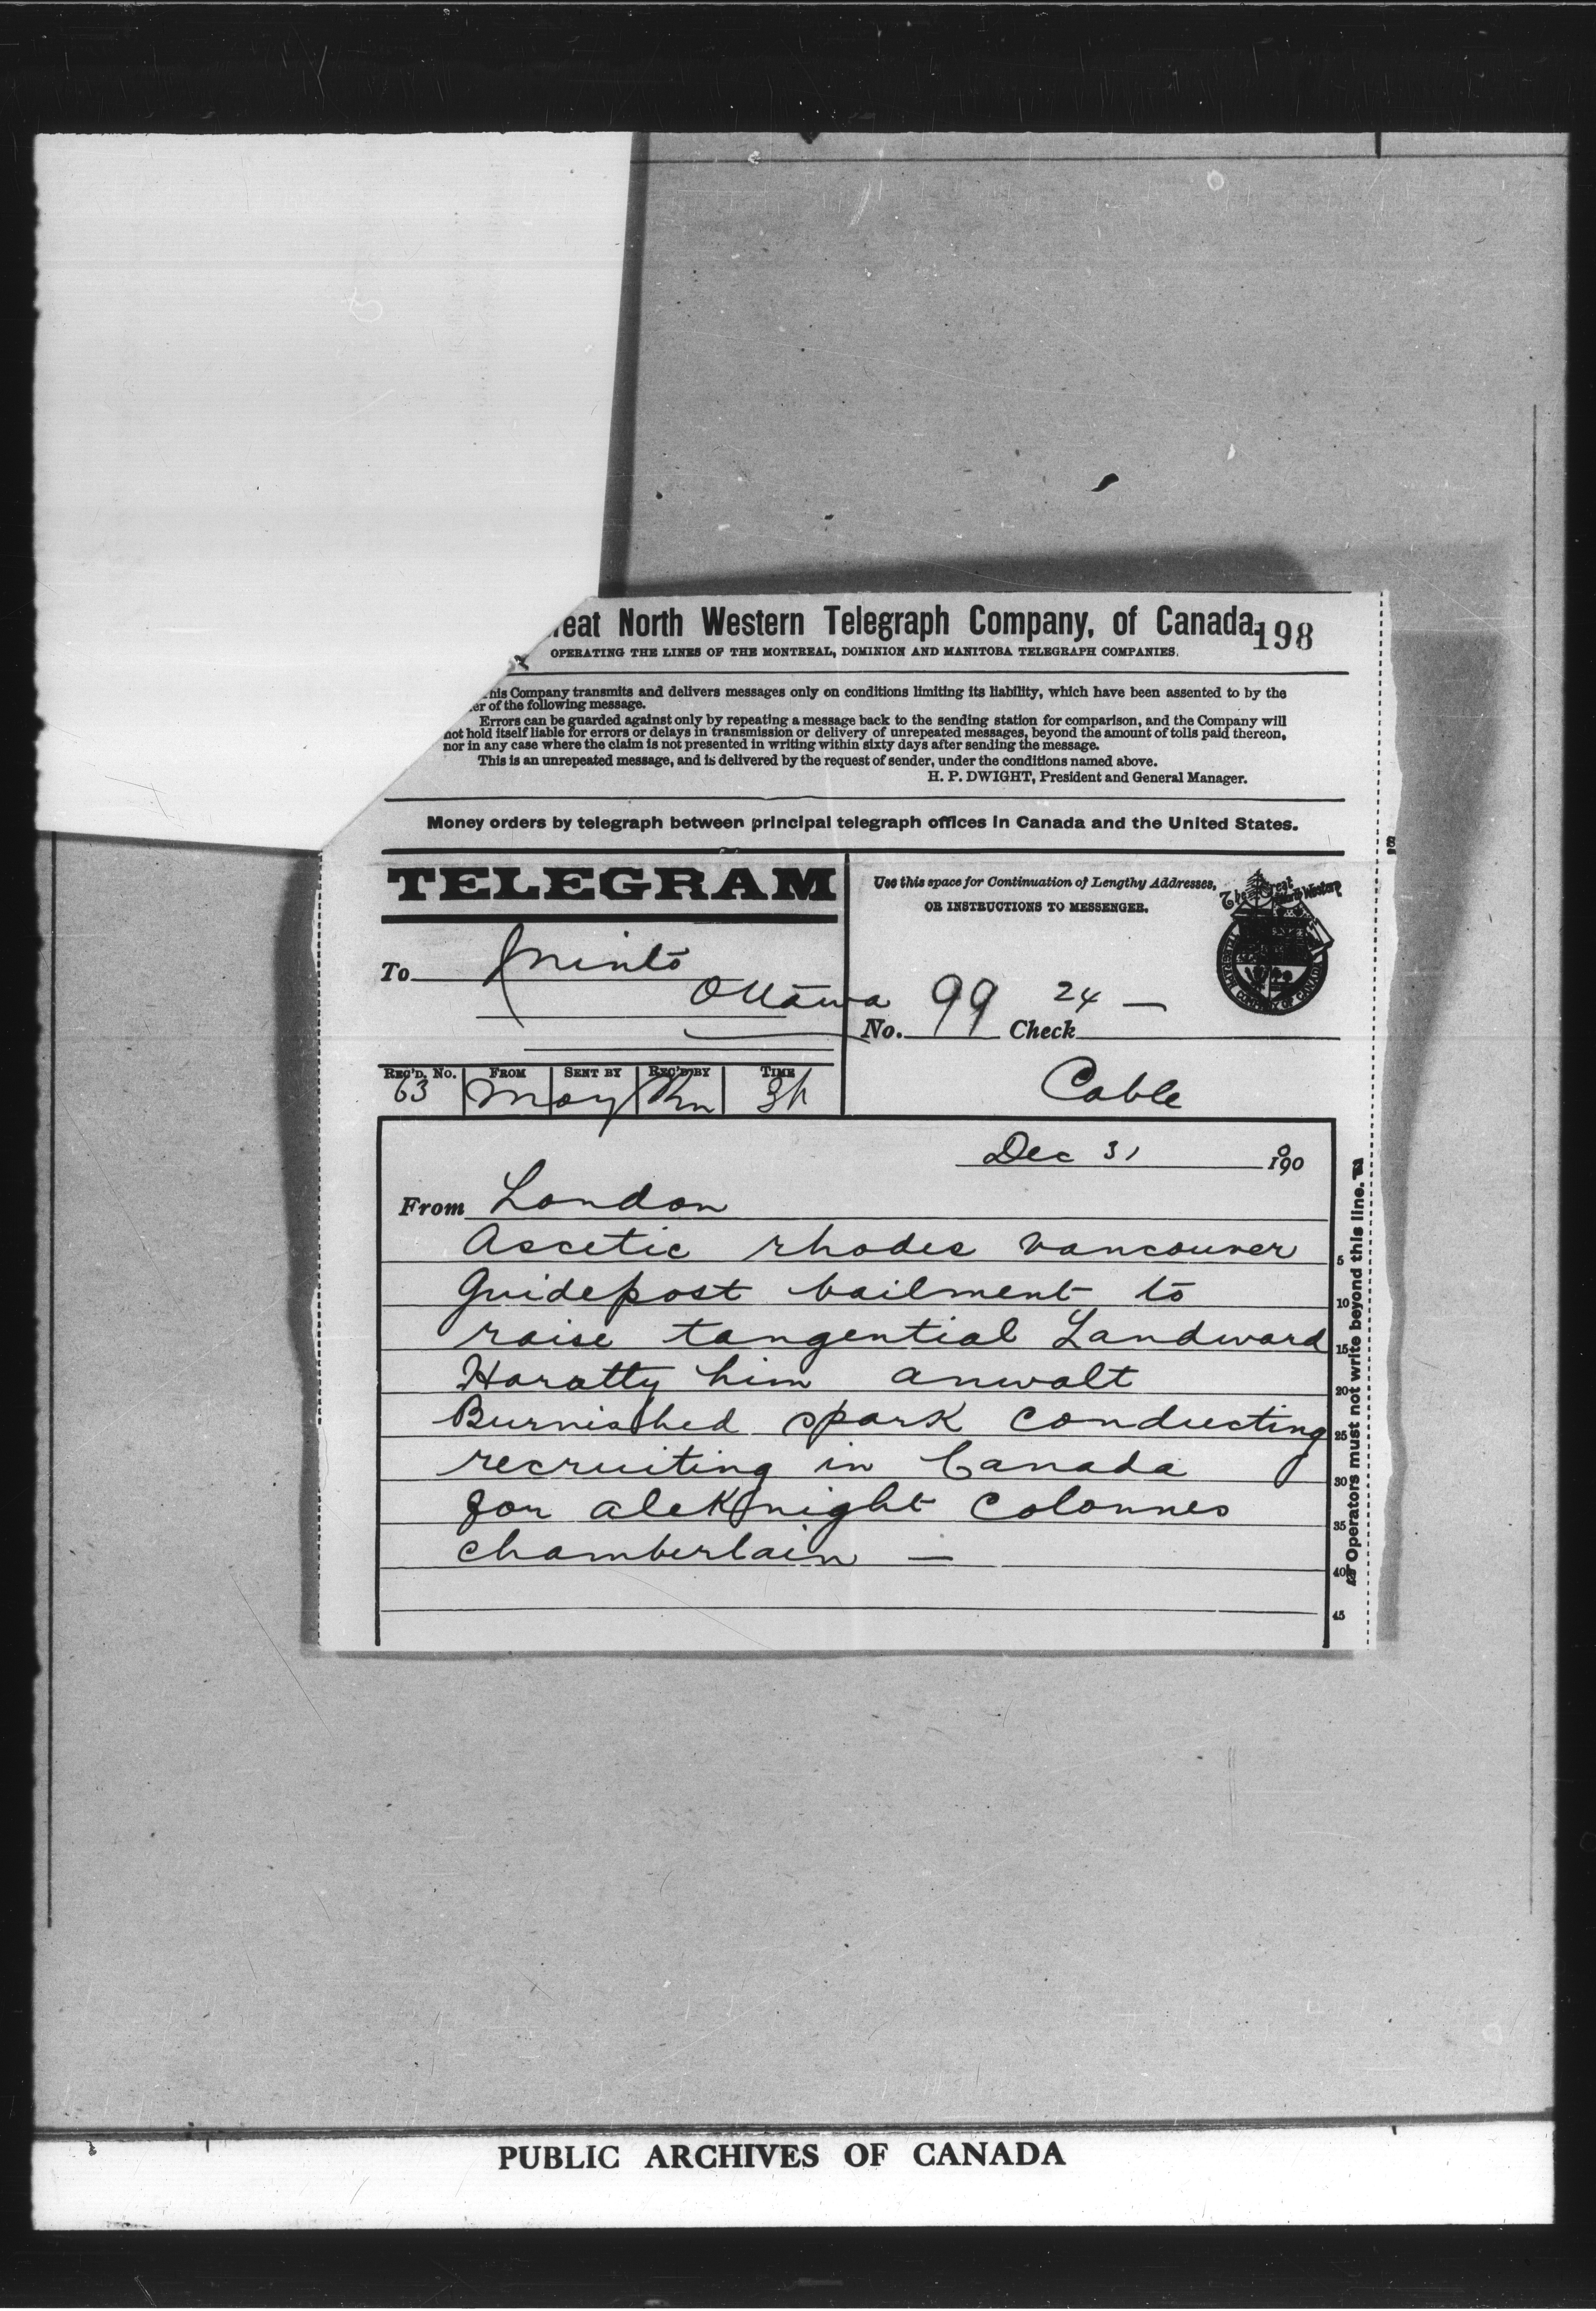 reat North Western Telegraph Company, of Canada.
198
OPERATING THE LINES OF THE MONTREAL, DOMINION AND MANITOBA TELEGRAPH COMPANIES.
his Company transmits and delivers messages only on conditions limiting its liability, which have been assented to by the
er of the following message.
Errors can be guarded against only by repeating a message back to the sending station for comparison, and the Company will
not hold itself liable for errors or delays in transmission or delivery of unrepeated messages, beyond the amount of tolls paid thereon,
nor in any case where the claim is not presented in writing within sixty days after sending the message.
This is an unrepeated message, and is delivered by the request of sender, under the conditions named above.
H. P. DWIGHT, President and General Manager.
Money orders by telegraph between principal telegraph offices in Canada and the United States.
TELEGRAM
Use this space for Continuation of Lengthy Addresses,
OR INSTRUCTIONS TO MESSENGER.
The Great North Western
TELEGRAPH COMPANY OF CANADA
To Minto
Ottawa
No. 99 Check 24 —
REC'D. No. FROM SENT BY REC'D BY TIME
63 May
Cable
Dec 31 190
From London
Ascetic rhodes vancouver
Guidepost bailment to
raise tangential Landward
Haratty him anwalt
Burnished spark conducting
recruiting in Canada
for aleknight Colonnes
chamberlain —
5
10
15
20
25
30
35
40
45
Operators must not write beyond this line.
PUBLIC ARCHIVES OF CANADA